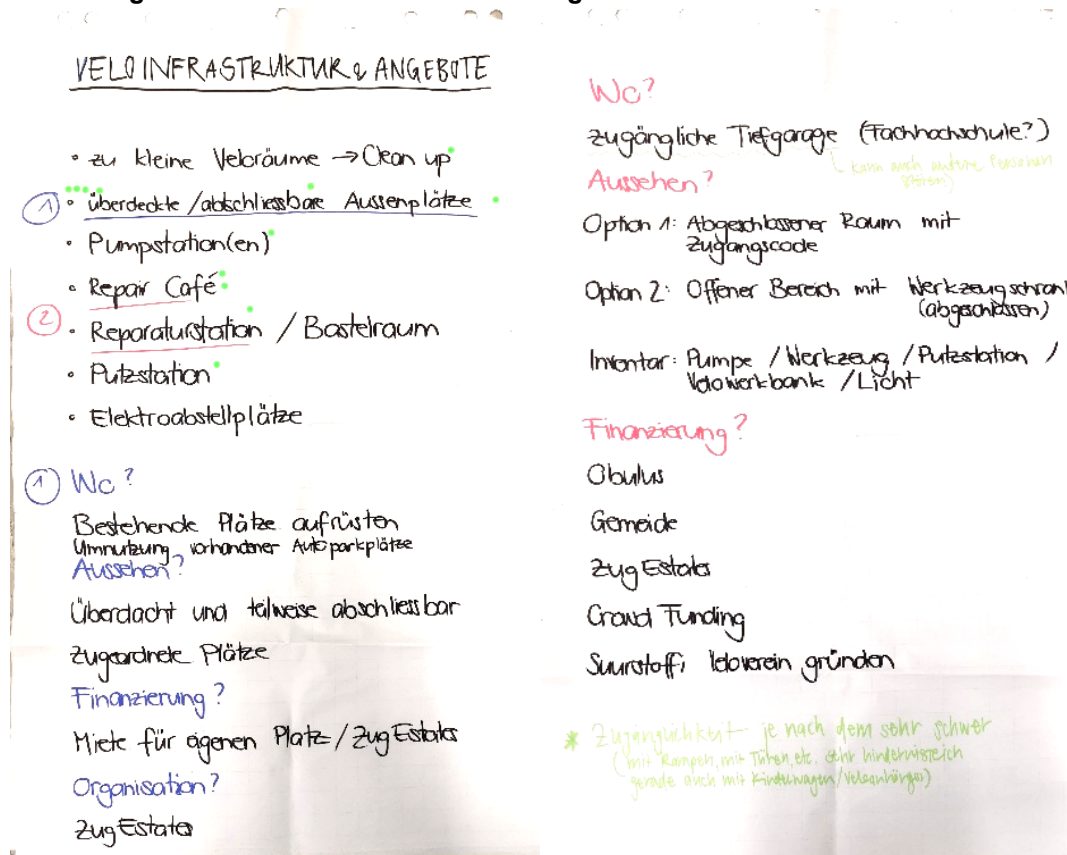 VELOINFRASTRUKTUR & ANGEBOTE
• zu kleine Veloräume → Clean up
① • überdeckte / abschliessbare Aussenplätze
• Pumpstation(en)
• Repair Café
② • Reparaturstation / Bastelraum
• Putzstation
• Elektroabstellplätze
① Wo?
Bestehende Plätze aufrüsten
Umnutzung vorhandener Autoparkplätze
Aussehen?
Überdacht und teilweise abschliessbar
Zugeordnete Plätze
Finanzierung?
Miete für eigenen Platz / Zug Estates
Organisation?
Zug Estates
Wo?
Zugängliche Tiefgarage (Fachhochschule?)
kann auch andere Personen
stören)
Aussehen?
Option 1: Abgeschlossener Raum mit
Zugangscode
Option 2: Offener Bereich mit Werkzeugschrank
(abgeschlossen)
Inventar: Pumpe / Werkzeug / Putzstation /
Velowerkbank / Licht
Finanzierung?
Obulus
Gemeide
Zug Estates
Crowd Funding
Suurstoffi Veloverein gründen
* Zugänglichkeit je nach dem sehr schwer
(mit Rampen, mit Türen, etc. sehr hindernisreich
gerade auch mit Kinderwagen / Veloanhänger)